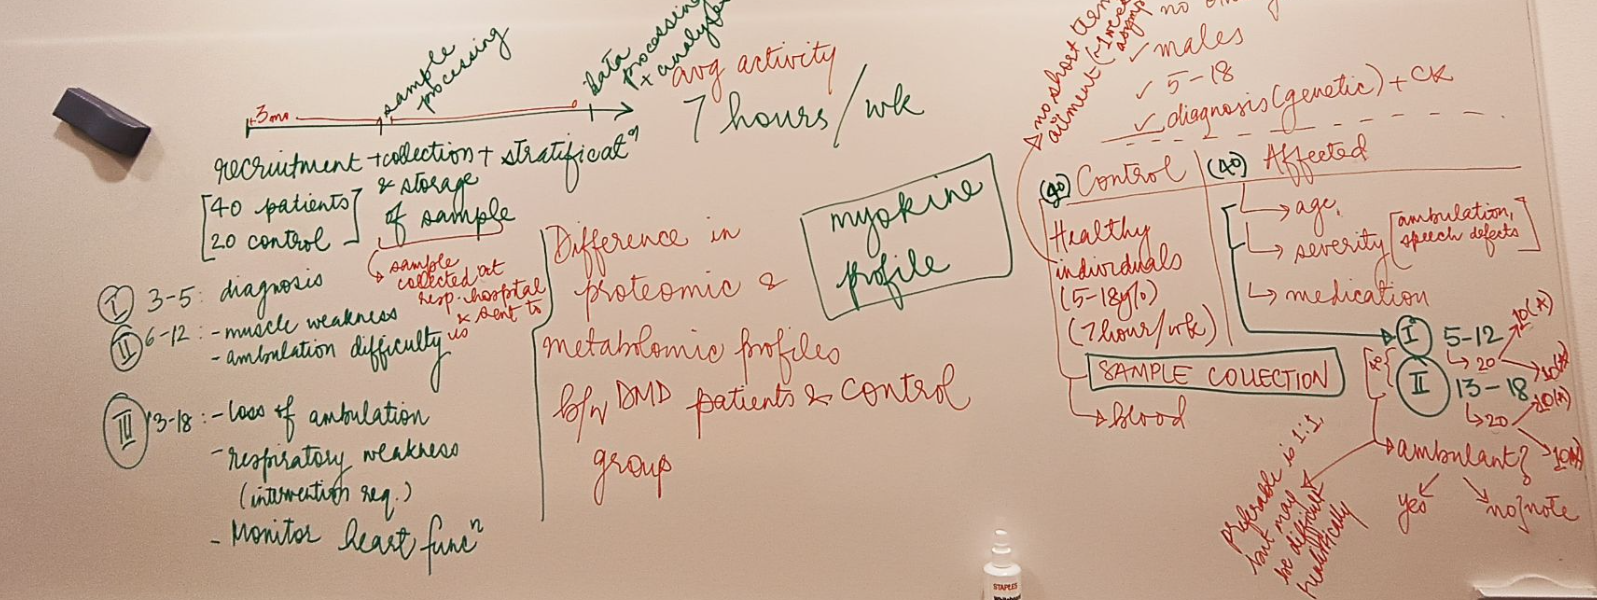 sample
processing
data
processing
+ analysis
3mo
recruitment + collection + stratificatⁿ
& storage
of sample
[40 patients]
[20 control]
↳ sample
collected at
resp. hospital
& sent to
us
I 3-5: diagnosis
II 6-12: - muscle weakness
- ambulation difficulty
III 13-18: - loss of ambulation
- respiratory weakness
(intervention req.)
- Monitor heart funcⁿ
avg activity
7 hours/wk
myokine
profile
Difference in
proteomic &
metabolomic profiles
b/w DMD patients & control
group
no short term
ailment
no
✓ males
✓ 5-18
✓ diagnosis (genetic) + CK
(40) Control
Healthy
individuals
(5-18y/o)
(7hour/wk)
(40) Affected
→ age
↳ severity [ambulation,
speech defects]
↳ medication
SAMPLE COLLECTION
→ blood
I 5-12
↳ 20
10(A)
II 13-18
↳ 20
→ ambulant?
yes
preferable is 1:1
but may
be difficult
realistically
STAPLES